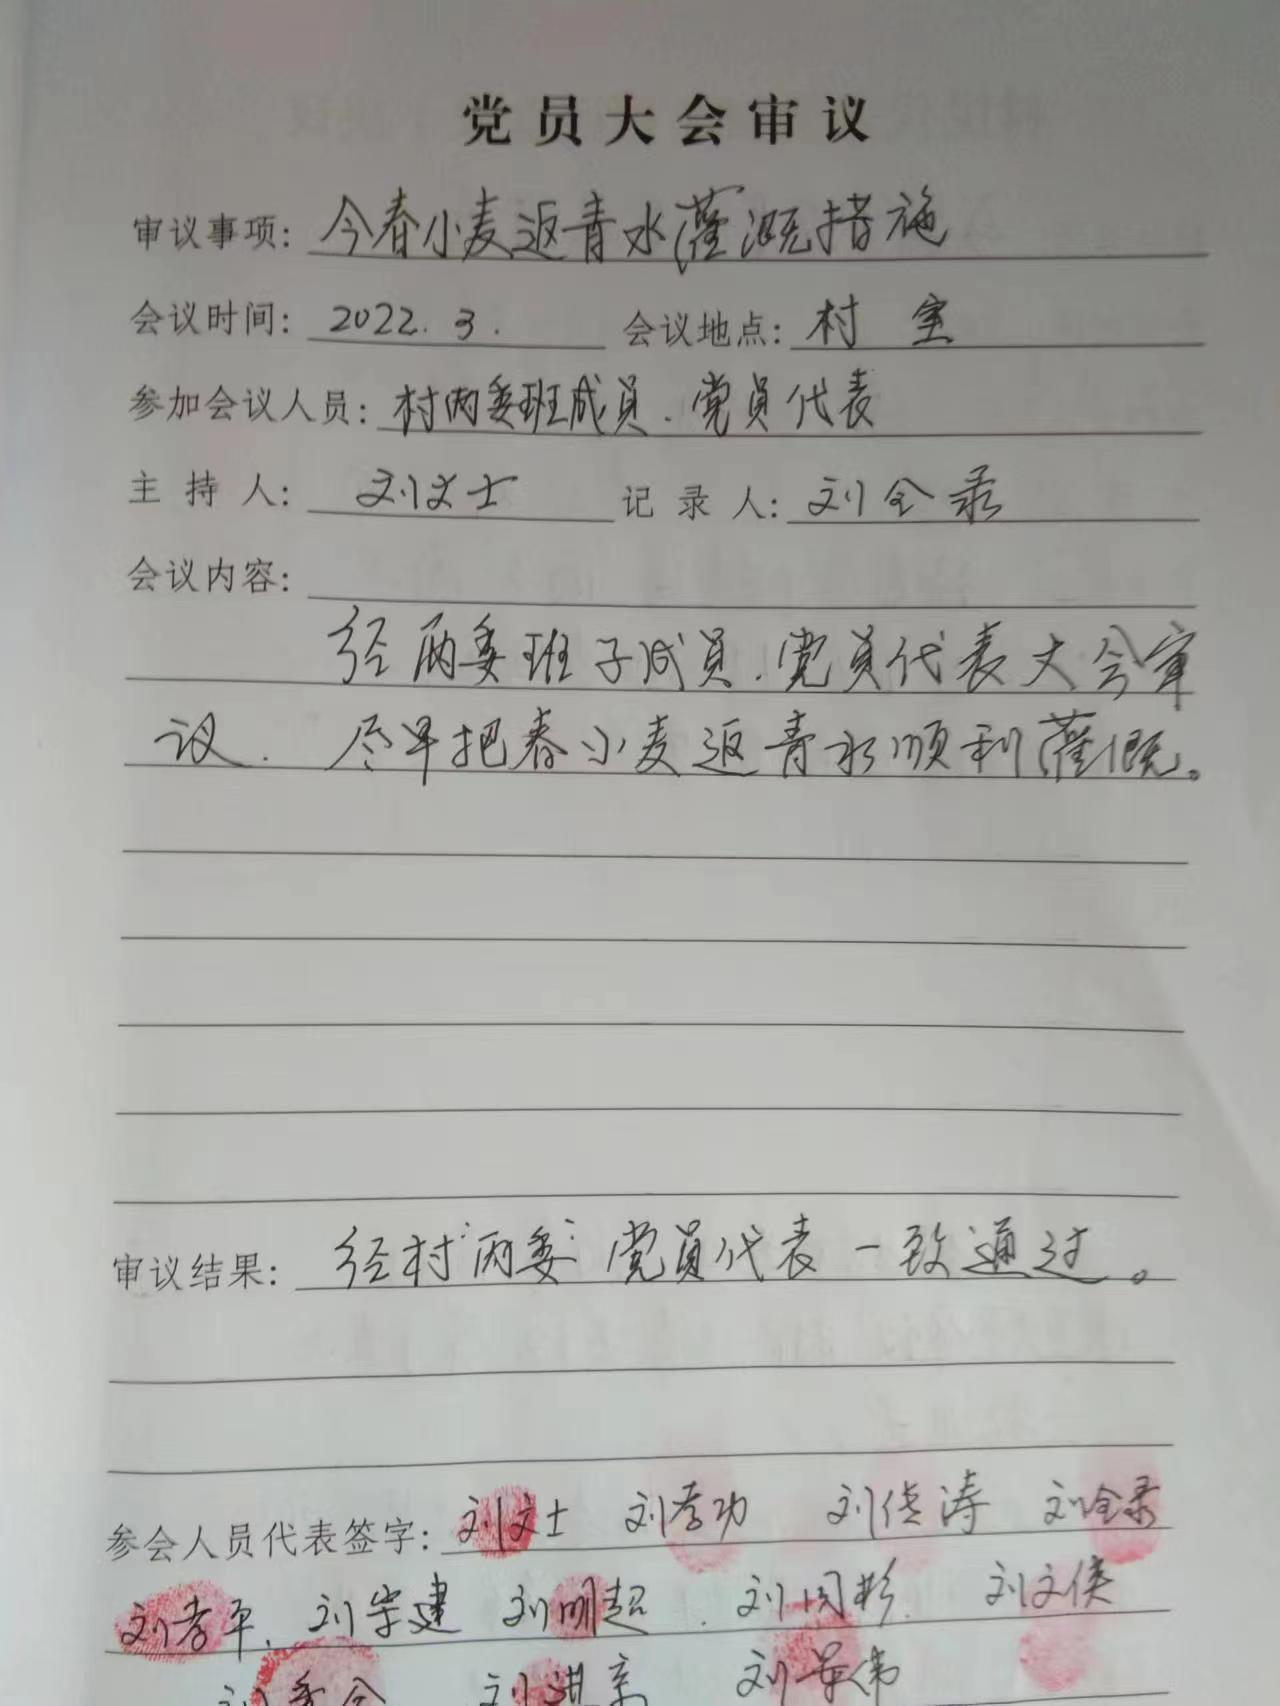 党员大会审议
审议事项：今春小麦返青水灌溉措施
会议时间：2022.3. 会议地点：村室
参加会议人员：村两委班成员.党员代表
主持人：刘文士 记录人：刘全录
会议内容：
经两委班子成员.党员代表大会审
议.尽早把春小麦返青水顺利灌溉。
审议结果：经村"两委"党员代表一致通过。
参会人员代表签字：刘文士 刘孝功 刘涛 刘全录
刘孝平. 刘学建 刘明超. 刘 刘文侠
刘 刘洪亮 刘伟